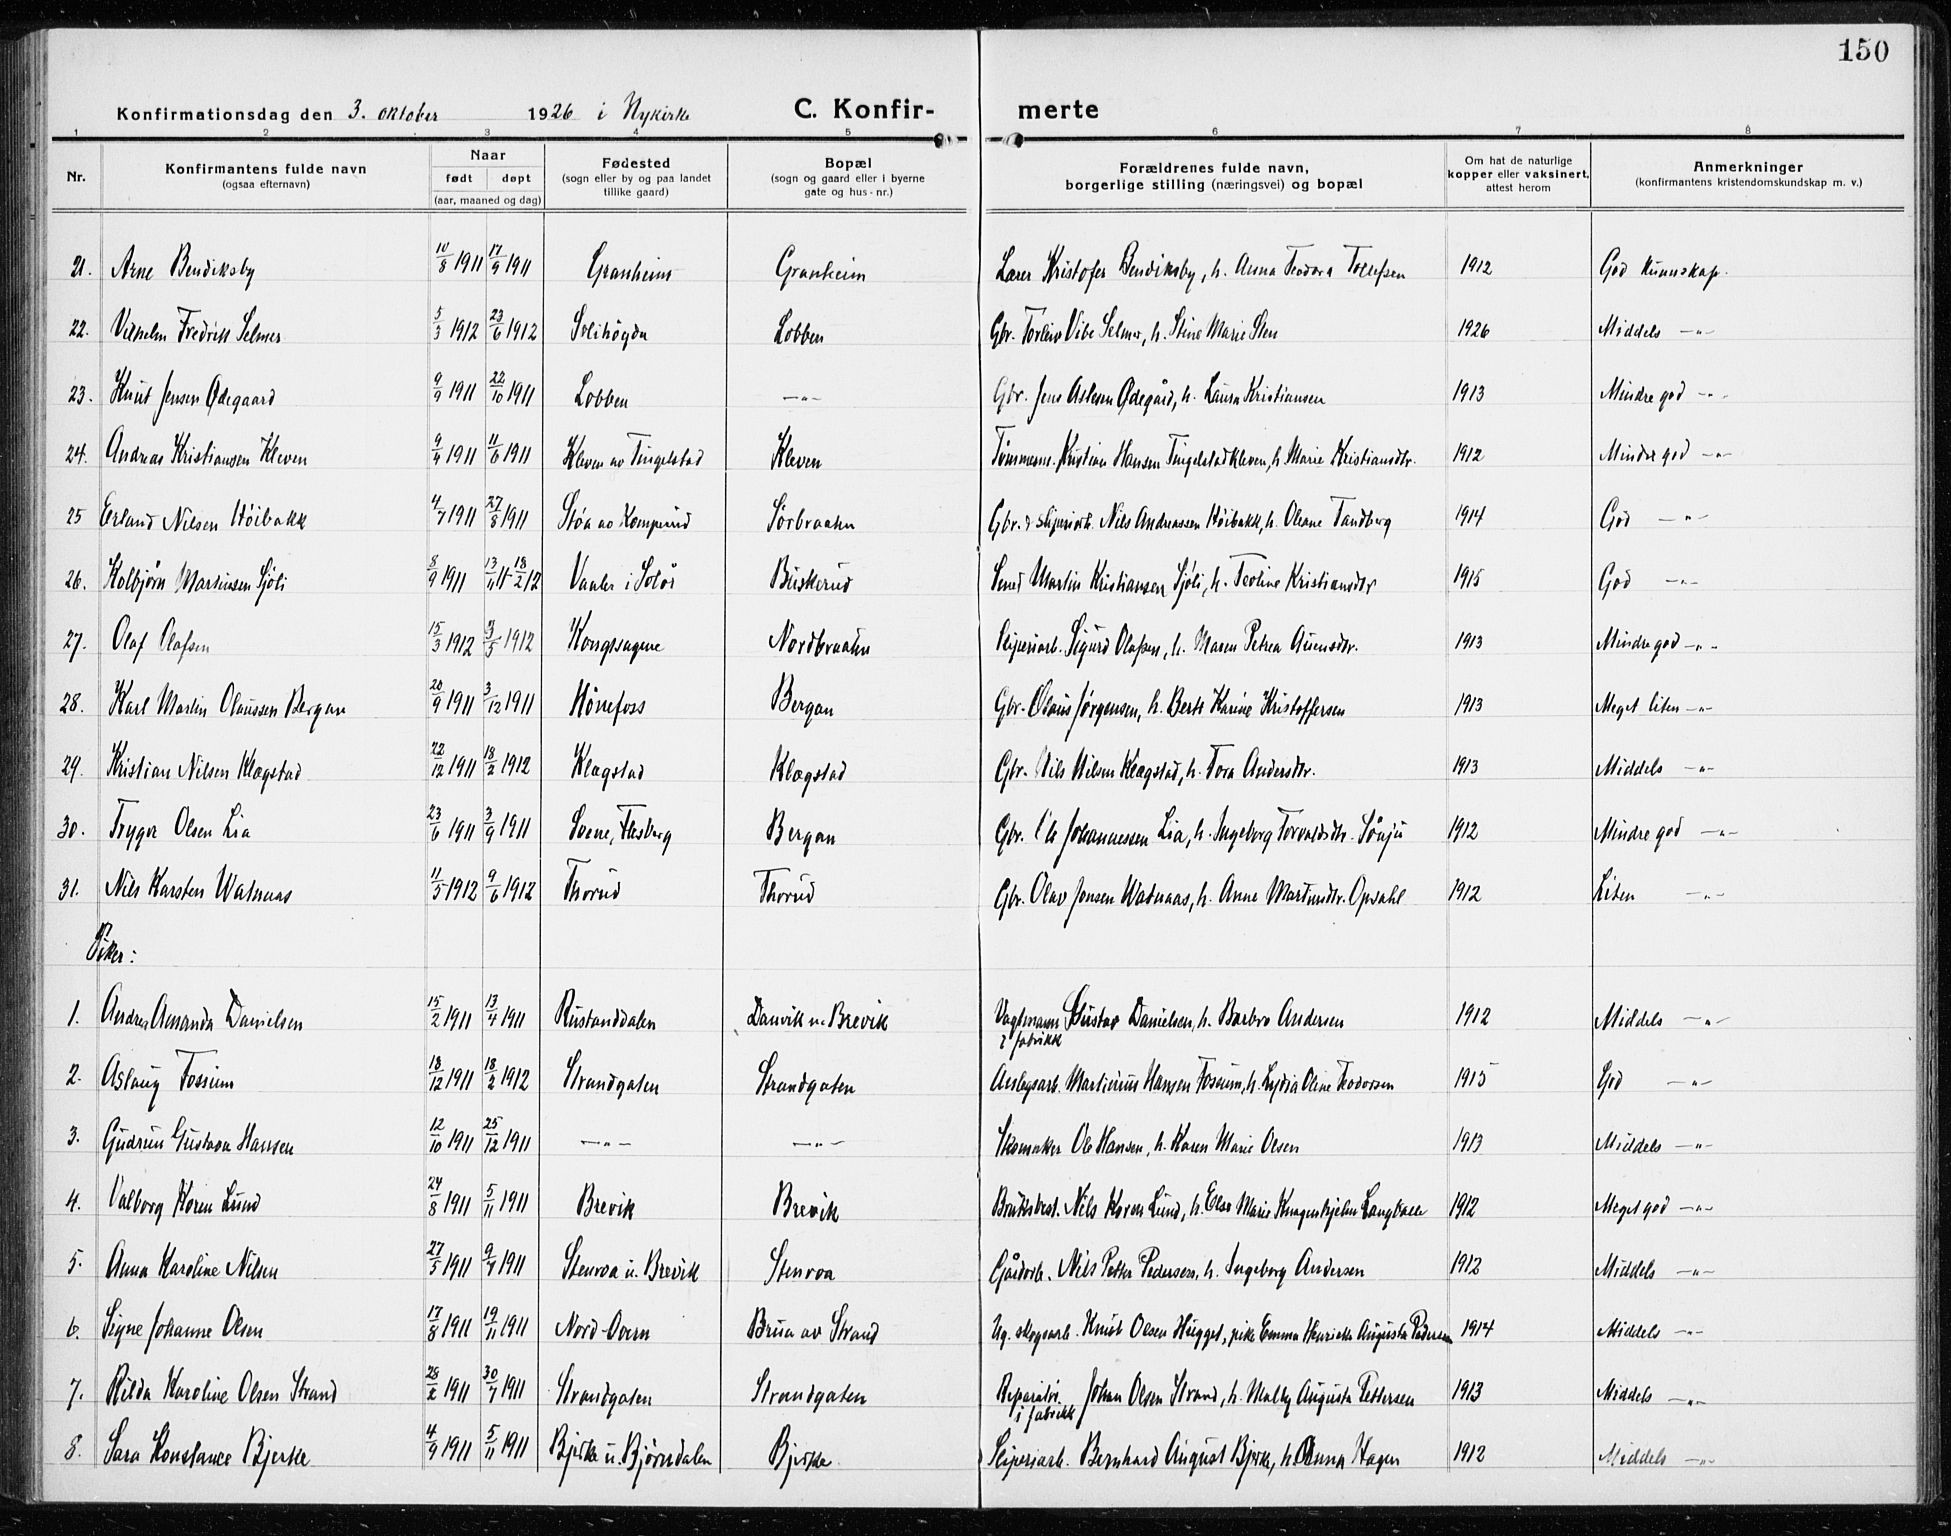 150
Konfirmationsdag den 3. oktober 1926 i Nykirke C. Konfir- merte
1 2 3 4 5 6 7 8
Nr. Konfirmantens fulde navn (ogsaa efternavn) Naar født døpt (aar, maaned og dag) Fødested (sogn eller by og paa landet tillike gaard) Bopæl (sogn og gaard eller i byerne gate og hus-nr.) Forældrenes fulde navn, borgerlige stilling (næringsvei) og bopæl Om hat de naturlige kopper eller vaksinert, attest herom Anmerkninger (konfirmantens kristendomskundskap m. v.)
21. Arne Bendiksby 10/8 1911 17/9 1911 Granheim Granheim Lærer Kristofer Bendiksby, h. Anna Teodora Tollefsen 1912 God kunnskap.
22. Vilhelm Fredrik Selmer 5/3 1912 23/6 1912 Solihøgda Lobben Gbr. Torleiv Vibe Selmer, h. Stine Marie Sten 1926 Middels —"—
23. Knut Jensen Ødegaard 9/9 1911 22/10 1911 Lobben —"— Gbr. Jens Aslesen Ødegård, h. Laura Kristiansen 1913 Mindre god —"—
24. Andreas Kristiansen Kleven 9/4 1911 11/6 1911 Kleven av Tingelstad Kleven Tømmerm. Kristian Hansen Tingelstadkleven, h. Marie Kristiansdtr. 1912 Mindre god —"—
25 Erland Nilsen Høibakk 4/7 1911 27/8 1911 Støa av Komperud Sørbraatn Gbr. & sliperiarb. Nils Andreassen Høibakk, h. Oleane Tandberg 1914 God —"—
26. Kolbjørn Martinsen Sjøli 8/9 1911 13/11 11-18/2 12 Vaaler i Solør Buskerud Smed Martin Kristiansen Sjøli, h. Teoline Kristiansdtr 1915 God —"—
27. Olaf Olafsen 15/3 1912 /5 1912 Kongssagene Nordbraatn Sliperiarb. Sigurd Olafsen, h. Maren Petrea Auensdtr. 1913 Mindre god —"—
28. Karl Martin Olaussen Bergan 20/9 1911 3/12 1911 Hønefoss Bergan Gbr. Olaus Jørgensen, h. Berte Karine Kristoffersen 1913 Meget liten —"—
29. Kristian Nilsen Klogstad 22/12 1911 18/2 1912 Klogstad Klogstad Gbr. Nils Nilsen Klogstad, h. Tora Andersdtr. 1913 Middels —"—
30. Trygve Olsen Lia 23/6 1911 3/9 1911 Svene, Flesberg Bergan Gbr. Ole Johannessen Lia, h. Ingeborg Torvaldsdtr. Sønju 1912 Mindre god —"—
31. Nils Karsten Watnaas 11/5 1912 9/6 1912 Thorud Thorud Gbr. Olav Jensen Watnaas, h. Anne Martinsdtr. Opsahl 1912 Liten —"—
Piker:
1. Andrea Amanda Danielsen 15/2 1911 13/4 1911 Rustanddalen Danvik u. Brevik Vagtmann i fabrikk Gustav Danielsen, h. Barbro Andersen 1912 Middels —"—
2. Aslaug Fossum 18/12 1911 18/2 1912 Strandgaten Strandgaten Anlegsarb. Martinius Hansen Fossum, h. Lydia Oline Teodorsen 1915 God —"—
3. Gudrun Gustava Hansen 12/10 1911 25/12 1911 —"— —"— Skomaker Ole Hansen, h. Karen Marie Olsen 1913 Middels —"—
4. Valborg Koren Lund 24/8 1911 5/11 1911 Brevik Brevik Bruksbest. Nils Koren Lund, h. Else Marie Knagenhjelm Langballe 1912 Meget god —"—
5. Anna Karoline Nilsen 27/5 1911 9/7 1911 Stenroa u. Brevik Stenroa Gårdarb. Nils Petter Pedersen, h. Ingeborg Andersen 1912 Middels —"—
6. Signe Johanne Olsen 17/8 1911 19/11 1911 Nord-Overn Brua av Strand Ug. skogsarb. Knut Olsen Hugget, pike Emma Henriette Augusta Pedersen 1914 Middels —"—
7. Hilda Karoline Olsen Strand 28/2 1911 30/7 1911 Strandgaten Strandgaten Reparatør i fabrikk Johan Olsen Strand, h. Malby Augusta Pettersen 1913 Middels —"—
8. Sara Konstance Bjerke 4/9 1911 5/11 1911 Bjerke u. Bjørndalen Bjerke Sliperiarb. Bernhard August Bjerke, h. Anna Hagen 1912 Middels —"—